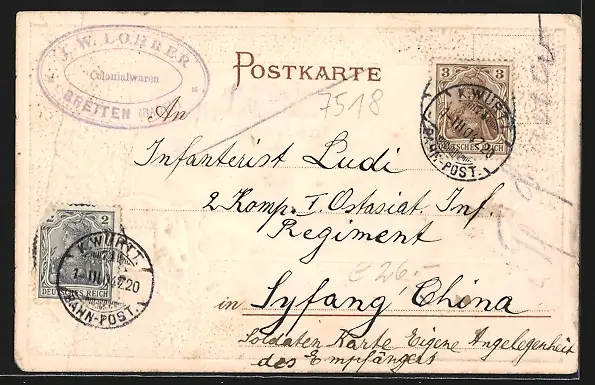 J. W. LOHRER
Colonialwaren
BRETTEN
POSTKARTE
3
DEUTSCHES REICH
K. WÜRTT.
BAHN-POST.
7518
An
Infanterist Ludi
2 Komp. I. Ostasiat. Inf.
Regiment
2
DEUTSCHES REICH
K. WÜRTT.
BAHN-POST.
€ 26.-
in Syfang China
Soldaten Karte Eigene Angelegenheit
des Empfängers